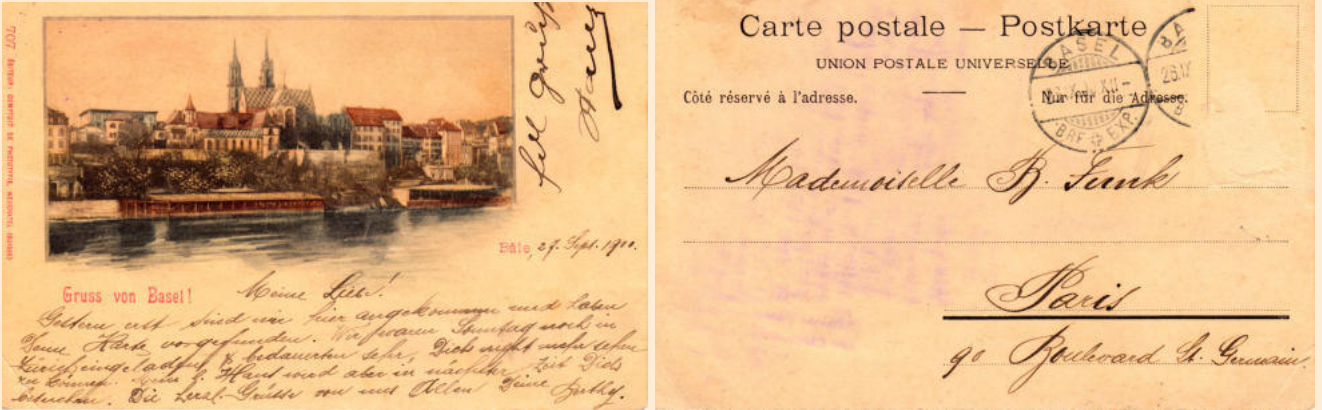 707 ÉDITEUR: COMPTOIR DE PHOTOTYPIE, NEUCHATEL (SUISSE)
Bâle, 27. Sept. 1900.
Gruss von Basel!
Meine Liebe!
Gestern erst sind wir hier angekommen und haben
Deine Karte vorgefunden. Wir waren Sonntag noch in
eingeladen & bedauerten sehr, Dich nicht mehr sehen
zu können. Hans wird aber in nächster Zeit Dich
besuchen. Die herzl. Grüsse von uns Allen Deine
Hans
Carte postale — Postkarte
UNION POSTALE UNIVERSELLE
Côté réservé à l'adresse.
Nur für die Adresse.
BASEL
BRF. EXP.
BA
26.IX
B
Mademoiselle B. Funk
Paris
90 Boulevard St. Germain.